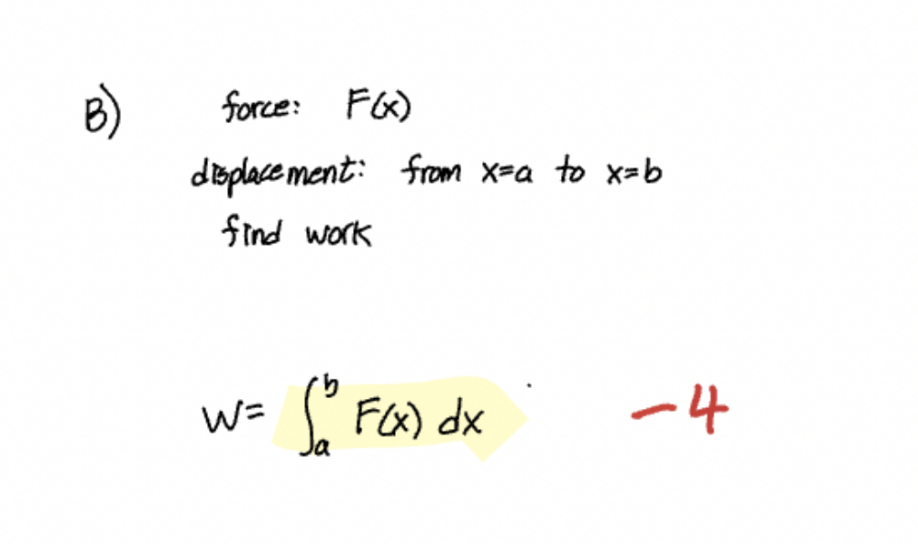 B) force: F(x)
displacement: from x=a to x=b
find work
W= ∫ₐᵇ F(x) dx -4